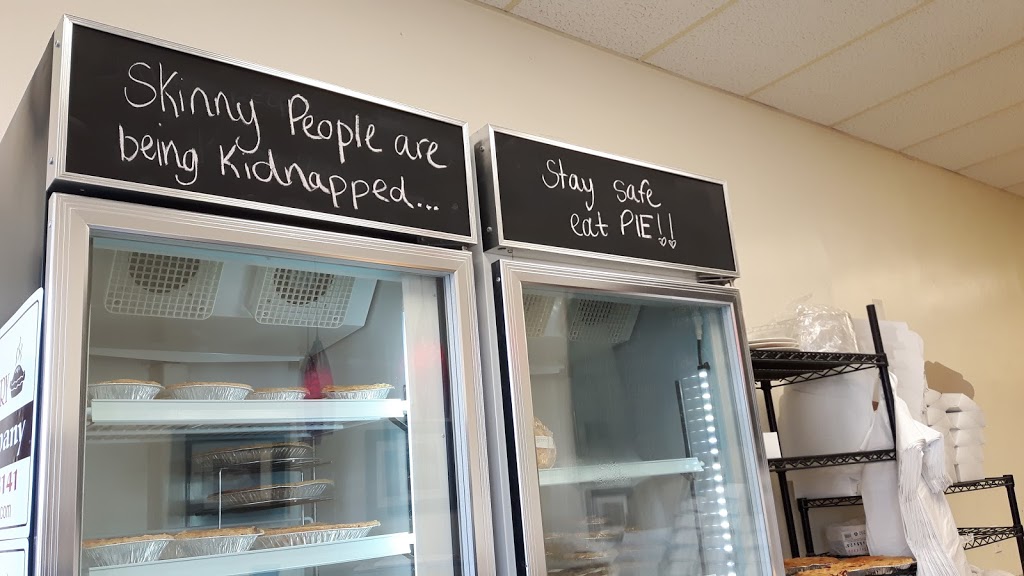 Skinny People are
being Kidnapped...
Stay safe
eat PIE!!
141
.com